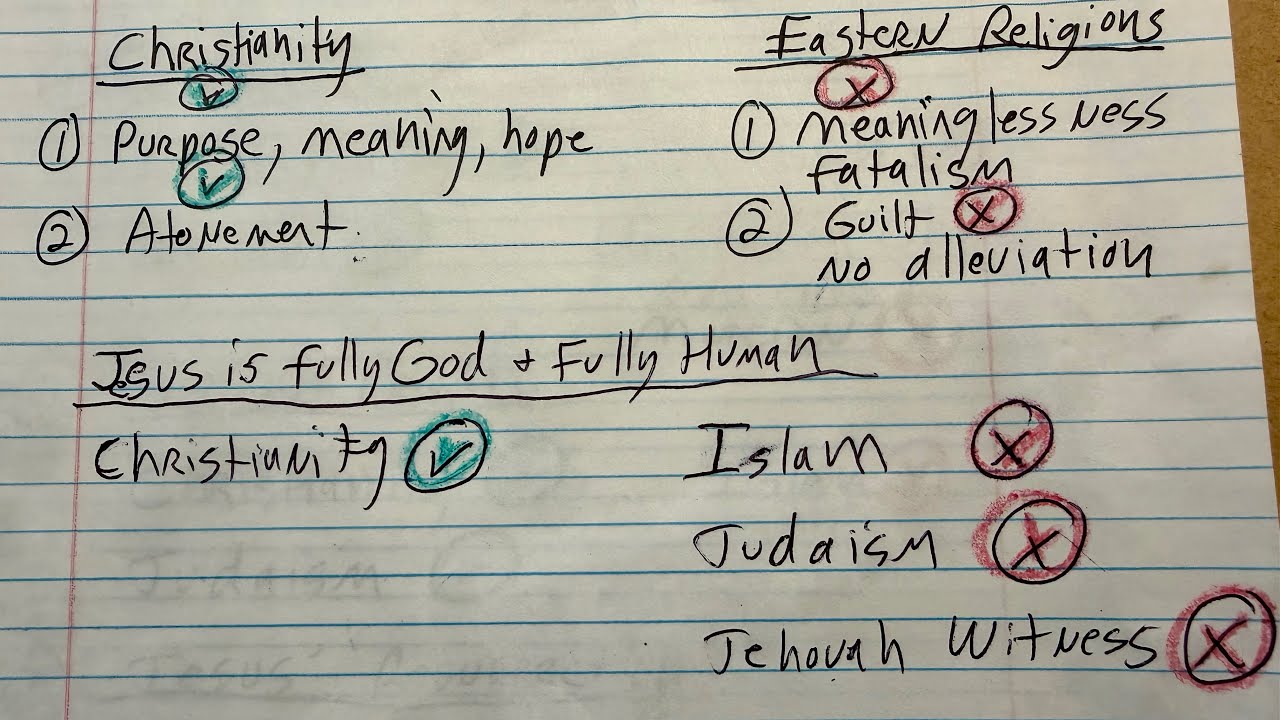 Christianity
① Purpose, meaning, hope
② Atonement.
Eastern Religions
① Meaninglessness
Fatalism
② Guilt
No alleviation
Jesus is fully God + Fully Human
Christianity
Islam
Judaism
Jehovah Witness